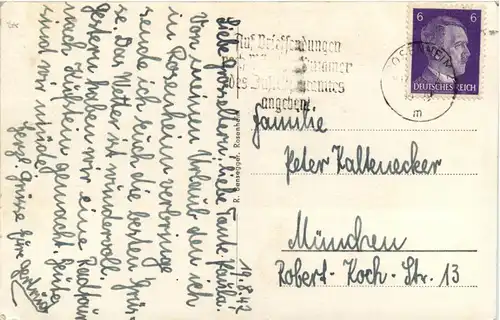 Liebe Grosseltern, liebe Tante Paula.
Von meinem Urlaub den ich
in Rosenheim verbringe
sende ich Euch die besten Grüs-
se. Das Wetter ist wundervoll.
Gestern haben wir eine Radtour
nach Kufstein gemacht. Heute
sind wir müde.
Herzl. Grüsse Eure Gertraud
19.8.42
R. Gensegger, Rosenheim
Auf Briefsendungen
des Absenders
angeben
ROSENHEIM
m
6 6
DEUTSCHES REICH
Familie
Peter Kaltenecker
München
Robert-Koch-Str. 13